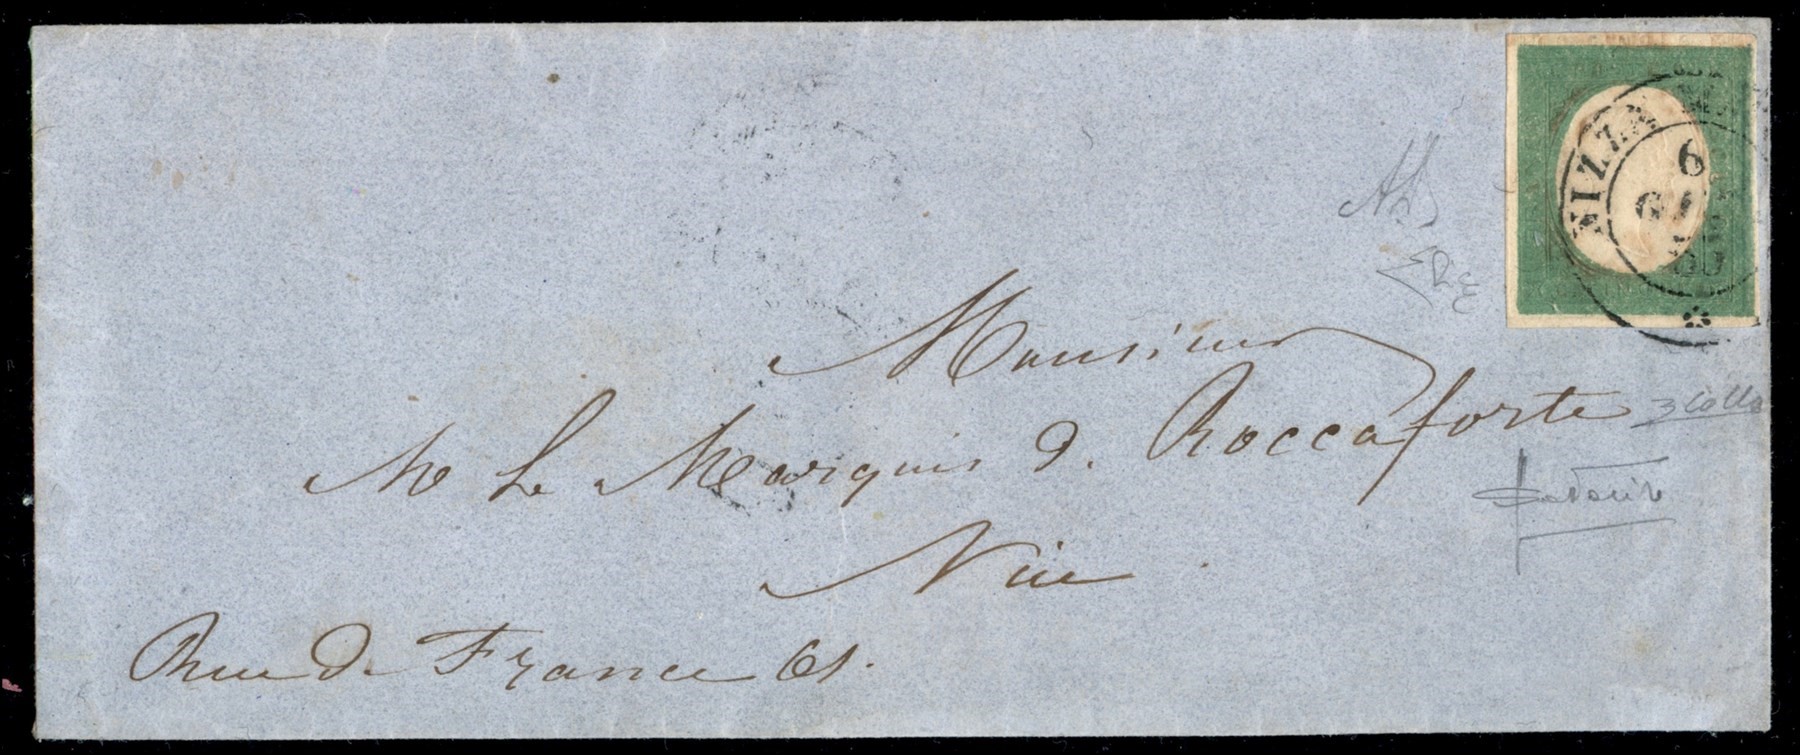 NIZZA
6
GIU
60
Monsieur
M Le Marquis d. Roccaforte
Nice
Rue de France 61.